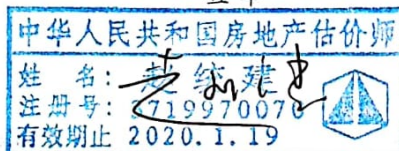 中华人民共和国房地产估价师
姓 名: 赵 统 建
注册号: 3719970070
有效期止 2020.1.19